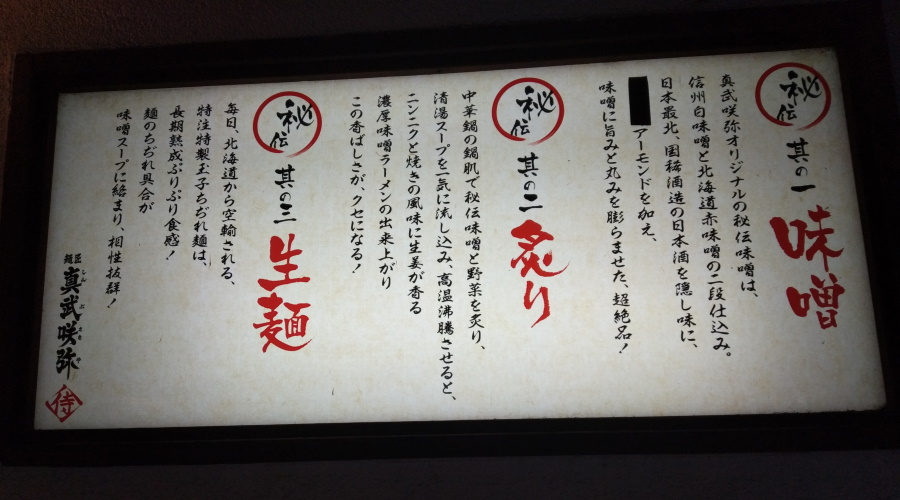 秘伝
其の一
味噌
真武咲弥オリジナルの秘伝味噌は、
信州白味噌と北海道赤味噌の二段仕込み。
日本最北、国稀酒造の日本酒を隠し味に、
アーモンドを加え、
味噌に旨みと丸みを膨らませた、超絶品！
秘伝
其の二
炙り
中華鍋の鍋肌で秘伝味噌と野菜を炙り、
清湯スープを一気に流し込み、高温沸騰させると、
ニンニクと焼きの風味に生姜が香る
濃厚味噌ラーメンの出来上がり
この香ばしさが、クセになる！
秘伝
其の三
生麺
毎日、北海道から空輸される、
特注特製玉子ちぢれ麺は、
長期熟成ぷりぷり食感！
麺のちぢれ具合が
味噌スープに絡まり、相性抜群！
麺匠
真武咲弥
しんぶさきや
侍